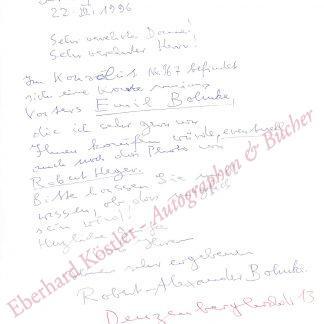 22. III. 1996
Sehr verehrte Dame!
Sehr verehrter Herr!
Im Konvolut Nr. 967 befindet
sich eine Karte meines
Vaters Emil Bohnke,
die ich sehr gern von
Ihnen kaufen würde, eventuell
auch noch das Photo von
Robert Heger.
Bitte lassen Sie
wissen, ob das möglich
sein wird!
Herzliche
Ihnen
sehr ergebener
Robert-Alexander Bohnke
13
Eberhard Köstler - Autographen & Bücher